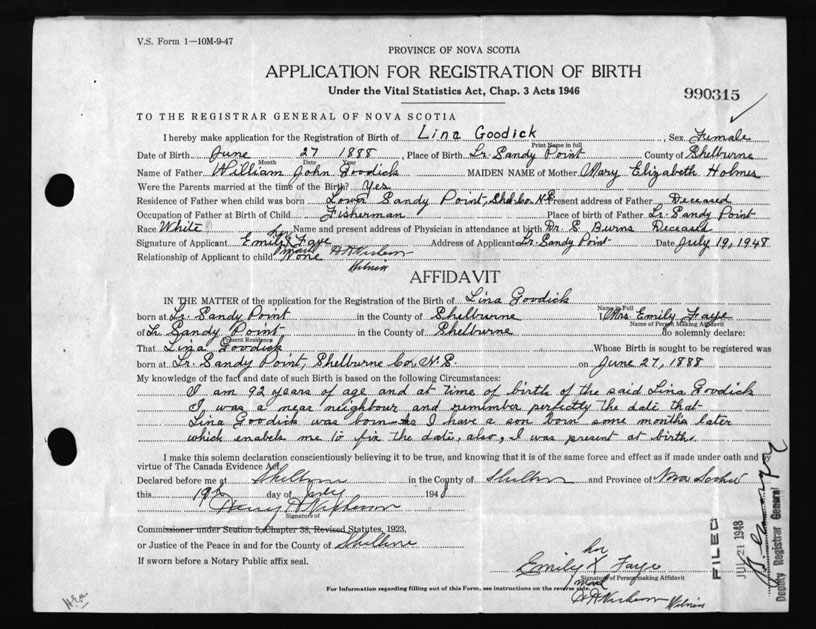 V.S. Form 1—10M-9-47
PROVINCE OF NOVA SCOTIA
APPLICATION FOR REGISTRATION OF BIRTH
Under the Vital Statistics Act, Chap. 3 Acts 1946
990315
TO THE REGISTRAR GENERAL OF NOVA SCOTIA
I hereby make application for the Registration of Birth of Lina Goodick Sex Female
Print Name in full
Date of Birth June 27 1888, Place of Birth Lr. Sandy Point County of Shelburne
Month Date Year
Name of Father William John Goodick MAIDEN NAME of Mother Mary Elizabeth Holmes
Were the Parents married at the time of the Birth? Yes
Residence of Father when child was born Lower Sandy Point, Shel. Co. N.S. Present address of Father Deceased
Occupation of Father at Birth of Child Fisherman Place of birth of Father Lr. Sandy Point
Race White Name and present address of Physician in attendance at birth Dr. S. Burns Deceased
Signature of Applicant Emily X Faye Address of Applicant Lr. Sandy Point Date July 19, 1948
her mark
Relationship of Applicant to child None
Witness
AFFIDAVIT
IN THE MATTER of the application for the Registration of the Birth of Lina Goodick
Name in Full
born at Lr. Sandy Point in the County of Shelburne I, Mrs. Emily Faye
Name of Person Making Affidavit
of Lr. Sandy Point in the County of Shelburne do solemnly declare:
Present Residence
That Lina Goodick Whose Birth is sought to be registered was
born at Lr. Sandy Point, Shelburne Co., N.S. on June 27, 1888
My knowledge of the fact and date of such Birth is based on the following Circumstances:
I am 92 years of age and at time of birth of the said Lina Goodick
I was a near neighbour and remember perfectly the date that
Lina Goodick was born as I have a son born some months later
which enabels me to fix the date, also, I was present at birth.
I make this solemn declaration conscientiously believing it to be true, and knowing that it is of the same force and effect as if made under oath and by
virtue of The Canada Evidence Act.
Declared before me at Shelburne in the County of Shelburne and Province of Nova Scotia
this 19th day of July 1948
Signature of
Commissioner under Section 5, Chapter 38, Revised Statutes, 1923,
or Justice of the Peace in and for the County of Shelburne
If sworn before a Notary Public affix seal.
her
Emily X Faye
Signature of Person making Affidavit
mark
Witness
For Information regarding filling out of this Form, see instructions on the reverse side.
FILED
JUL 21 1948
Deputy Registrar General